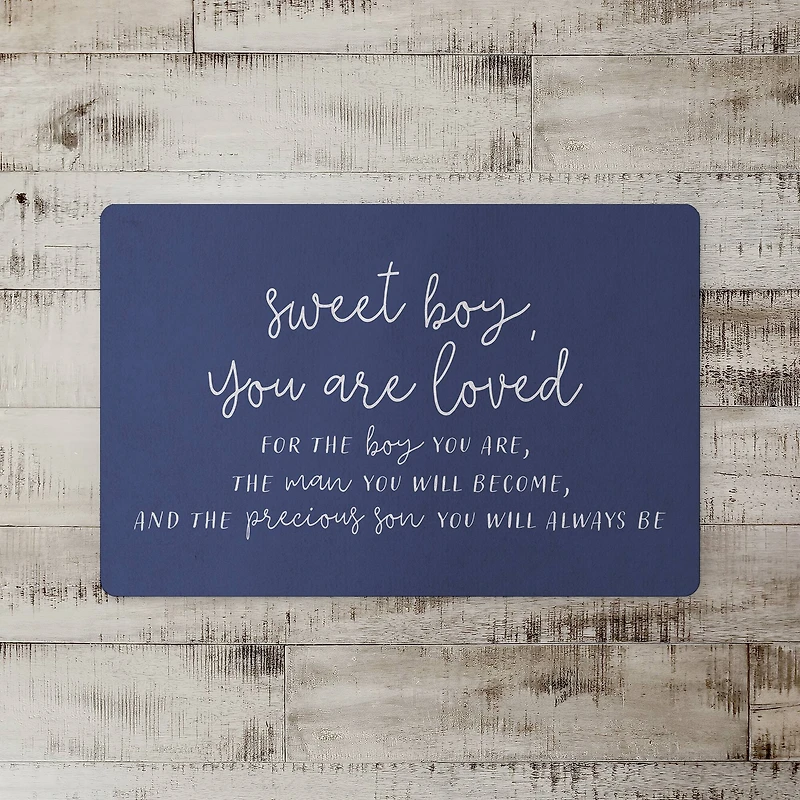 sweet boy,
you are loved
FOR THE boy YOU ARE,
THE man YOU WILL BECOME,
AND THE precious son YOU WILL ALWAYS BE